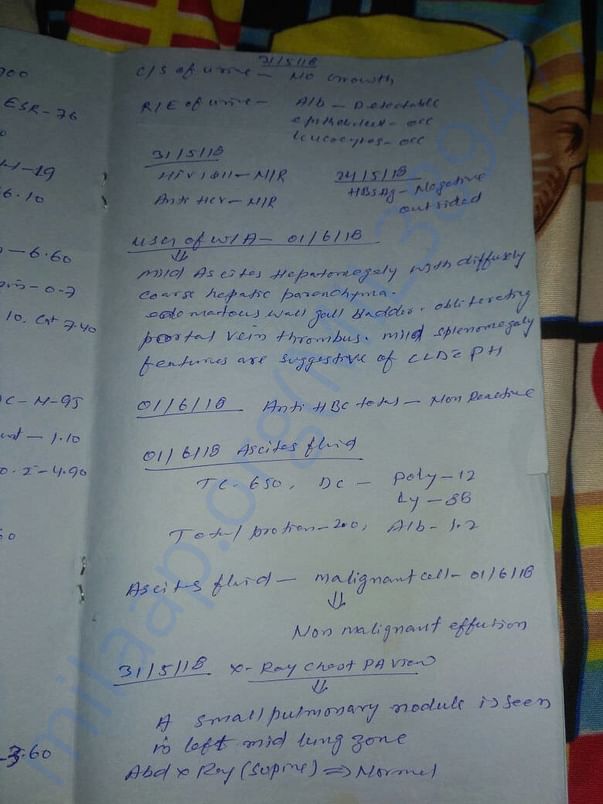 300
ESR-76
H-19
6.10
6.60
0-7
10. Cat 7.40
DC-M-95
1.10
0.2-4.90
60
-3.60
31/5/18
C/S of urine - No Growth
R/E of urine - Alb - Detectable
epithelial - occ
leucocytes - occ
31/5/18
HIV I & II - N/R
Anti HCV - N/R
24/5/18
HBsAg - Negative
outsided
USG of W/A - 01/6/18
⇓
Mild Ascites Hepatomegely with diffusely
coarse hepatic parenchyma.
edematous wall gall bladder. obliterating
portal vein thrombus. mild splenomegaly
features are suggestive of CLD c PH
01/6/18 Anti HBc total - Non Reactive
01/6/18 Ascites fluid
TC-650, DC - Poly-12
Ly-88
Total protien-2.0, Alb-1.2
Ascites fluid - malignant cell - 01/6/18
⇓
Non malignant effution
31/5/18 X-Ray chest PA view
⇓
A small pulmonary nodule is seen
in left mid lung zone
Abd x Ray (supine) ⇒ Normel
milaap.org